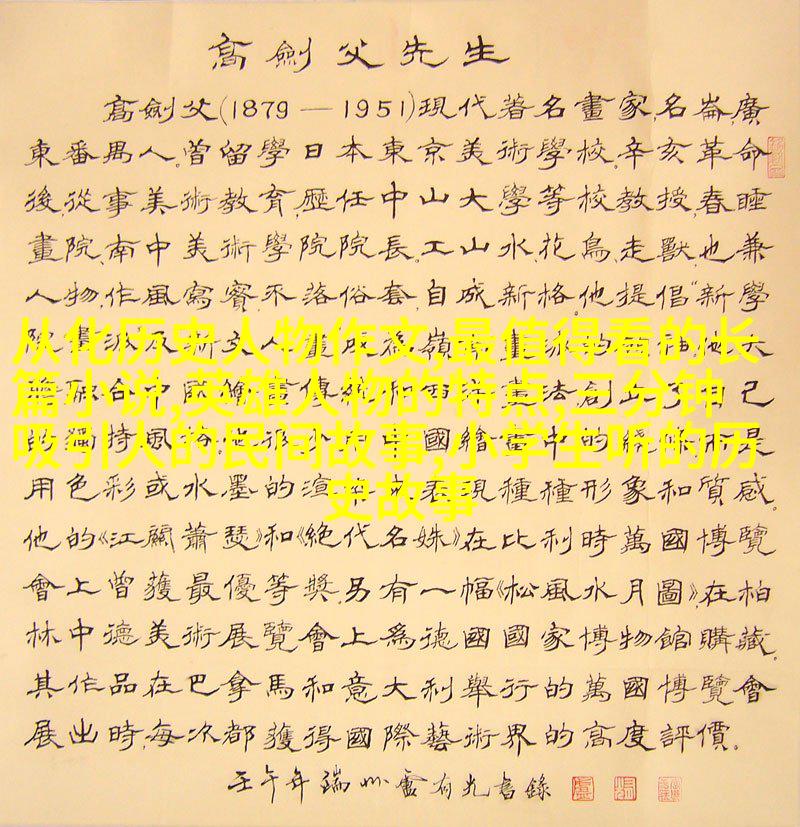 高劍父先生
高劍父(1879—1951)現代著名畫家,名崙,廣
東番禺人。曾留學日本東京美術學校。辛亥革命
後,從事美術教育,歷任中山大學等校教授,春睡
畫院、南中美術學院院長。工山水、花鳥、走獸,也兼
人物,作風寫實,不落俗套,自成新格。他提倡"新學
院畫派及新文人畫 成為嶺 畫 的 他大
从化历史人物作文,最值得看的长
融合中國 傳統和西 畫法創 己
篇小说,英雄人物的特点,三分钟
的獨特風格 他 中國繪畫中的線 是
吸引人的民间故事,小学生听的历
用色彩或水墨的渲 表現種種形象和質感。
史故事
他的《江關蕭瑟》和《絕代名姝》在比利時萬國博覽
會上曾獲最優等獎。另有一幅《松風水月圖》,在柏
林中德美術展覽會上爲德國國家博物館購藏。
其作品在巴拿馬和意大利舉行的萬國博覽會
展出時,每次都獲得國際藝術界的高度評價。
壬午年端州盧有光書錄